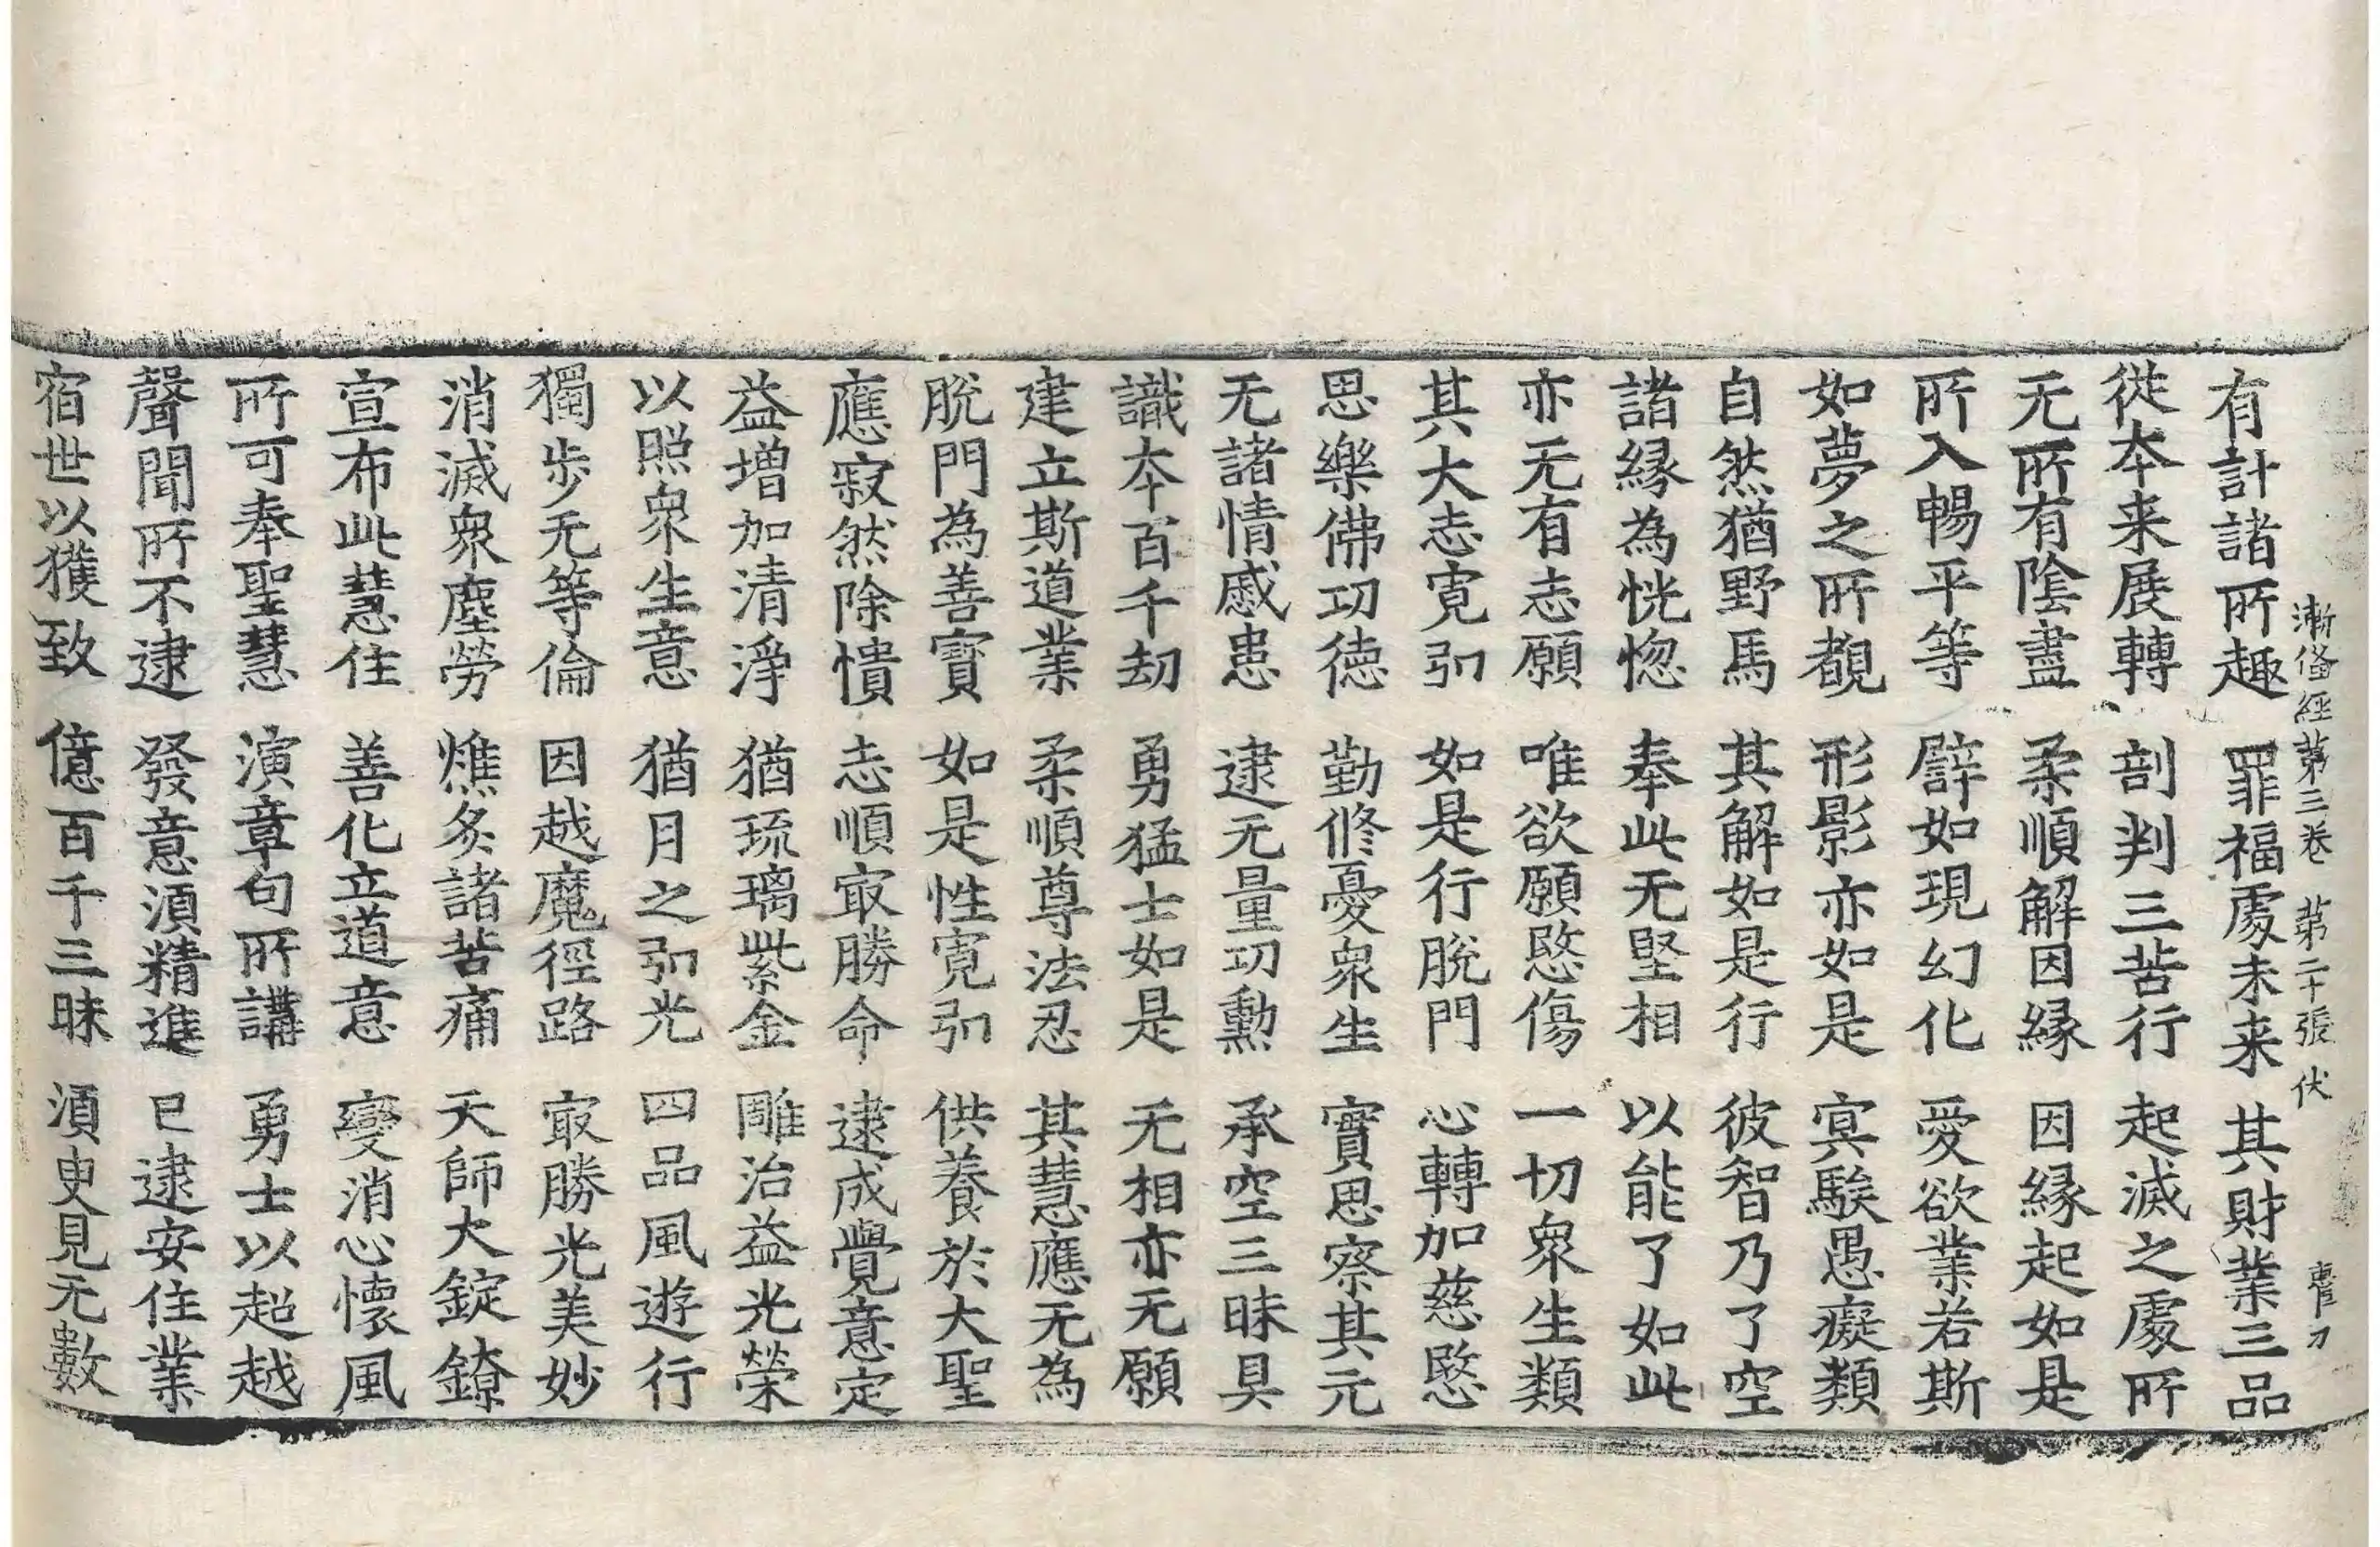 漸俻經第三卷 第二十張 伏
有計諸所趣 罪福處未来 其財業三品
從本来展轉 剖判三苦行 起滅之處所
无所有陰盡 柔順解因縁 因縁起如是
所入暢平等 譬如現幻化 愛欲業若斯
如夢之所覩 形影亦如是 冥騃愚癡類
自然猶野馬 其解如是行 彼智乃了空
諸縁為恍惚 奉此无堅相 以能了如此
亦无有志願 唯欲願愍傷 一切衆生類
其大志寛弘 如是行脫門 心轉加慈愍
思樂佛功徳 勤修憂衆生 實思察其元
无諸情慼患 逮无量功勲 承空三昧具
識本百千劫 勇猛士如是 无相亦无願
建立斯道業 柔順尊法忍 其慧應无為
脫門為善寳 如是性寛弘 供養於大聖
應寂然除憒 志順冣勝命 逮成覺意定
益増加清淨 猶琉璃紫金 雕治益光榮
以照衆生意 猶月之弘光 四品風遊行
獨歩无等倫 因越魔徑路 冣勝光美妙
消滅衆塵勞 燋炙諸苦痛 天師大錠鐐
宣布此慧住 善化立道意 變消心懷風
所可奉聖慧 演章句所講 勇士以超越
聲聞所不逮 發意湏精進 已逮安住業
宿世以獲致 億百千三昧 湏臾見无數